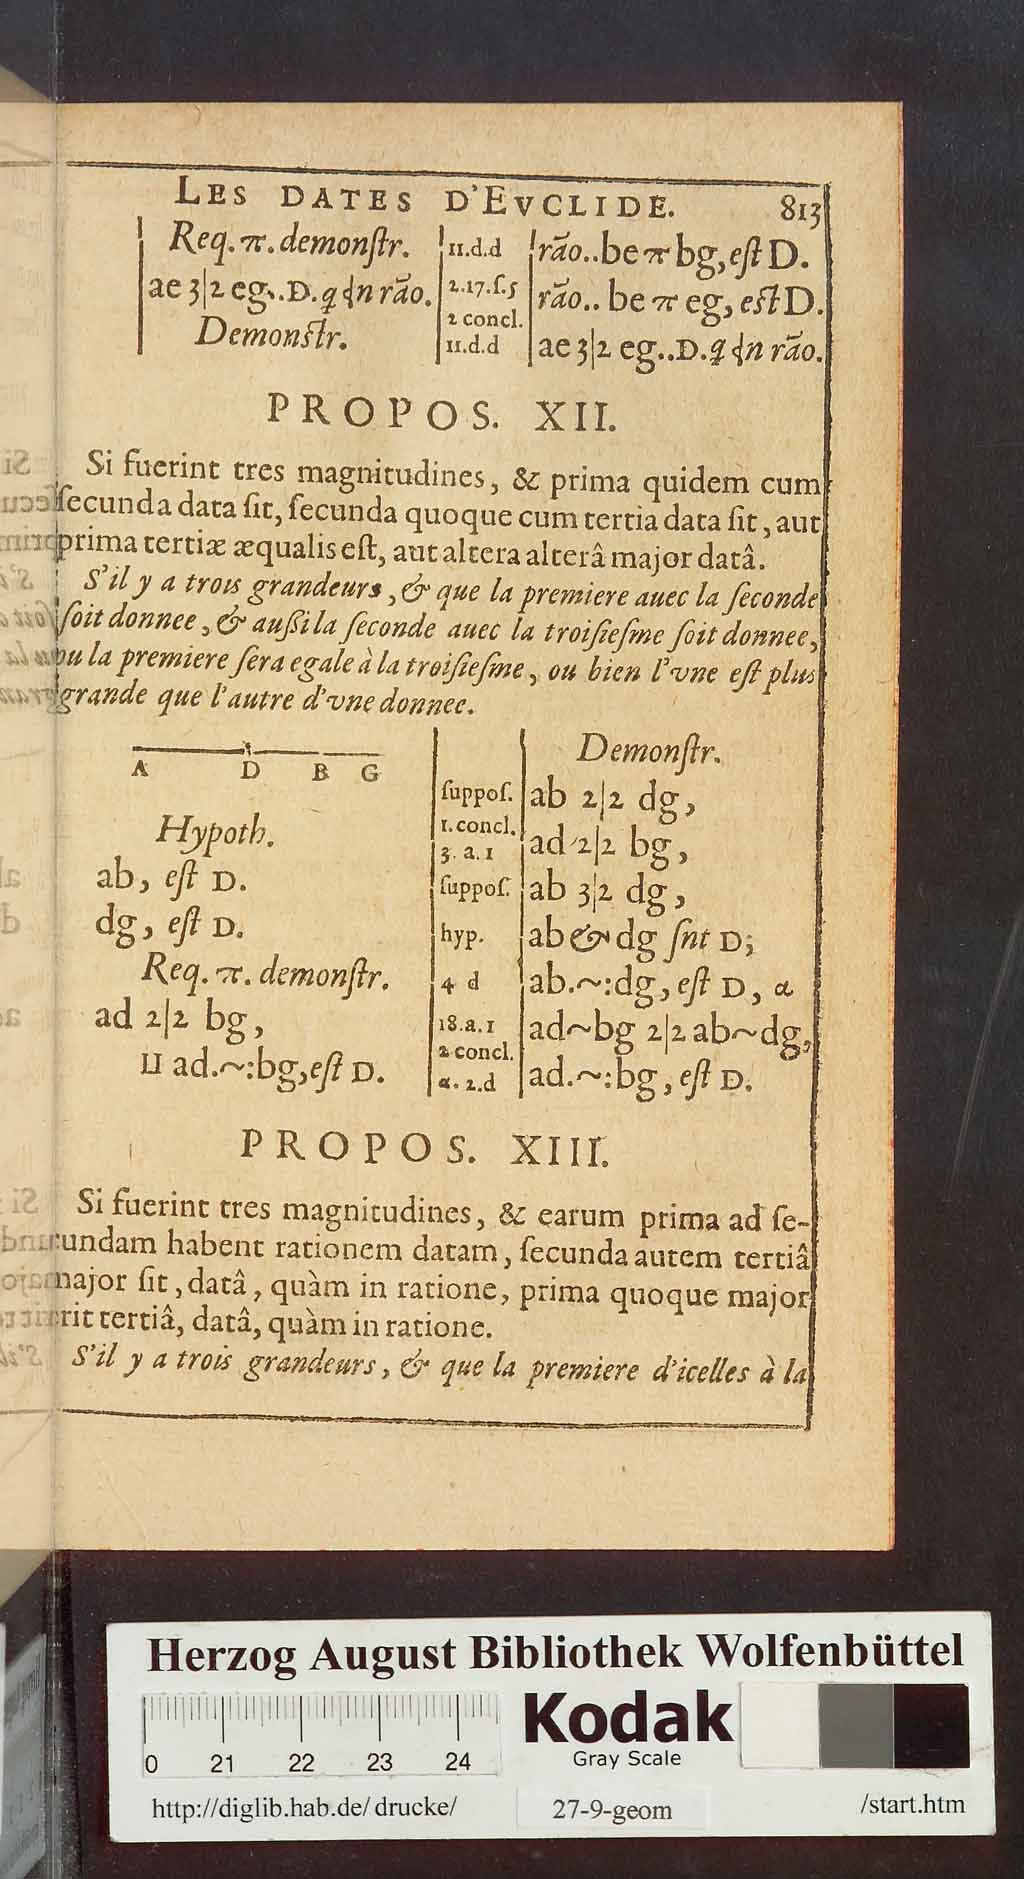 LES DATES D'EVCLIDE. 813
Req. π. demonſtr.
ae 3|2 eg..D. q
Demonſtr.
11.d.d
2.17.ſ.5
2 concl.
11.d.d
rão..be π bg, eſt D.
rão.. be π eg, eſt D.
ae 3|2 eg..D. q
PROPOS. XII.
Si fuerint tres magnitudines, & prima quidem cum
ſecunda data ſit, ſecunda quoque cum tertia data ſit, aut
prima tertiæ æqualis eſt, aut altera alterâ major datâ.
S'il y a trois grandeurs, & que la premiere auec la ſeconde
ſoit donnee, & auſſi la ſeconde auec la troiſieſme ſoit donnee,
ou la premiere ſera egale à la troiſieſme, ou bien l'vne eſt plus
grande que l'autre d'vne donnee.
A D B G
Hypoth.
ab, eſt D.
dg, eſt D.
Req. π. demonſtr.
ad 2|2 bg,
Ц ad.~:bg, eſt D.
Demonſtr.
ſuppoſ. ab 2|2 dg,
1. concl.
3. a. 1 ad 2|2 bg,
ſuppoſ. ab 3|2 dg,
hyp. ab & dg ſnt D;
4 d ab.~:dg, eſt D, α
18.a.1 ad~bg 2|2 ab~dg,
2 concl.
α. 2.d ad.~:bg, eſt D.
PROPOS. XIII.
Si fuerint tres magnitudines, & earum prima ad ſe-
cundam habent rationem datam, ſecunda autem tertiâ
major ſit, datâ, quàm in ratione, prima quoque major
erit tertiâ, datâ, quàm in ratione.
S'il y a trois grandeurs, & que la premiere d'icelles à la
Herzog August Bibliothek Wolfenbüttel
0 21 22 23 24
Kodak
Gray Scale
http://diglib.hab.de/drucke/ 27-9-geom /start.htm